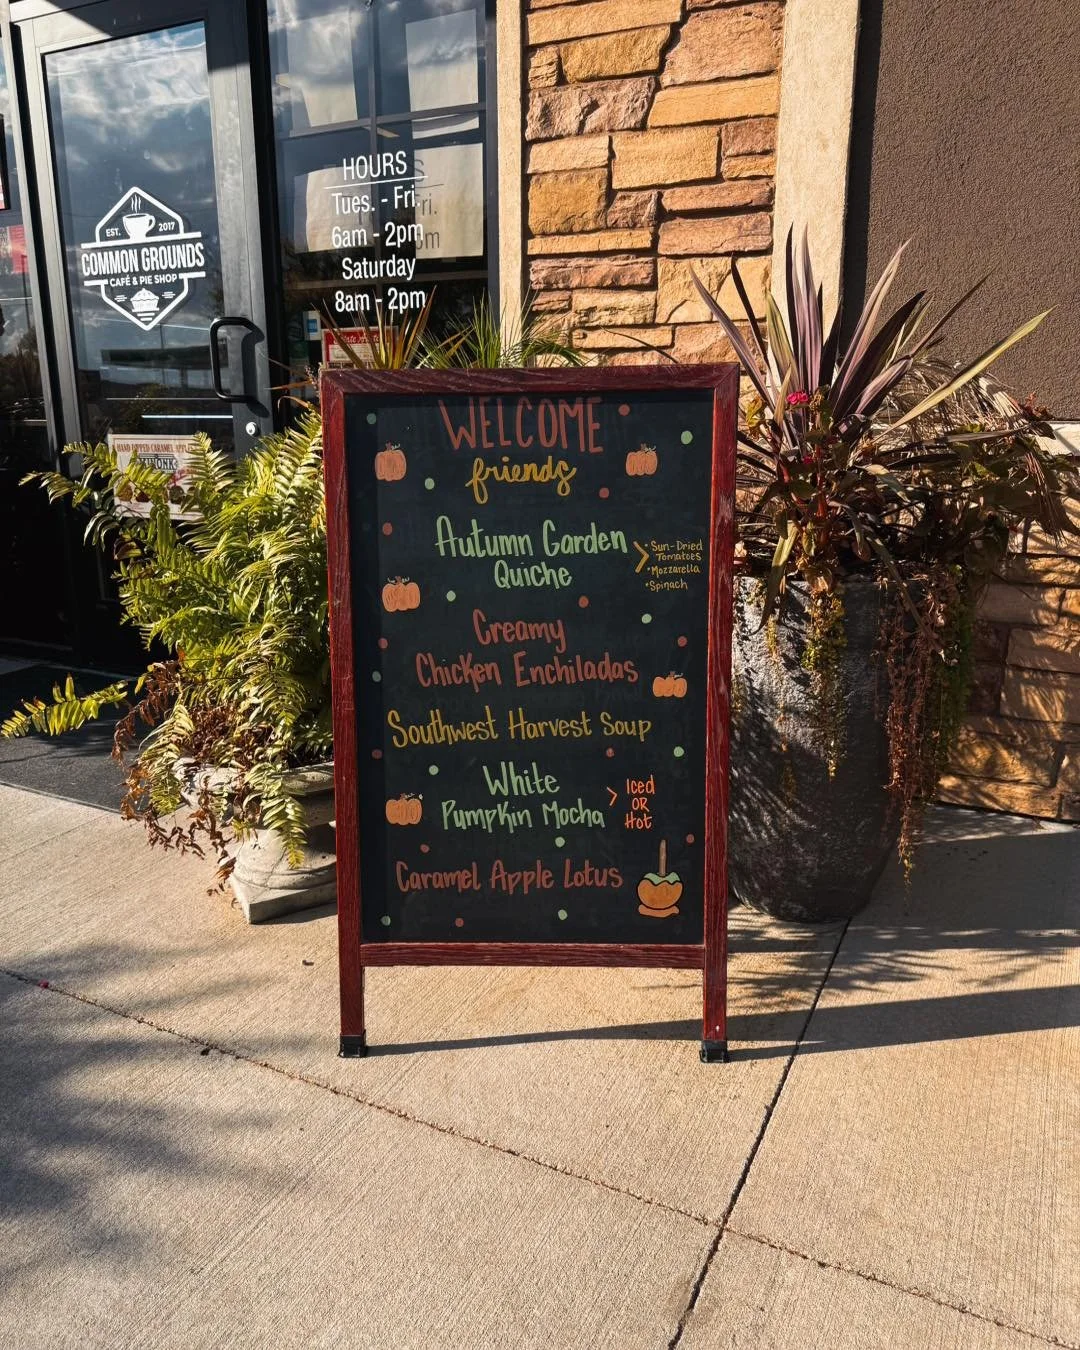 EST. 2017
COMMON GROUNDS
CAFÉ & PIE SHOP
HOURS
Tues. - Fri.
6am - 2pm
Saturday
8am - 2pm
HAND DIPPED CARAMEL APPLES
WELCOME
friends
Autumn Garden
Quiche
•Sun-Dried
Tomatoes
•Mozzarella
•Spinach
Creamy
Chicken Enchiladas
Southwest Harvest Soup
White
Pumpkin Mocha
Iced
OR
Hot
Caramel Apple Lotus